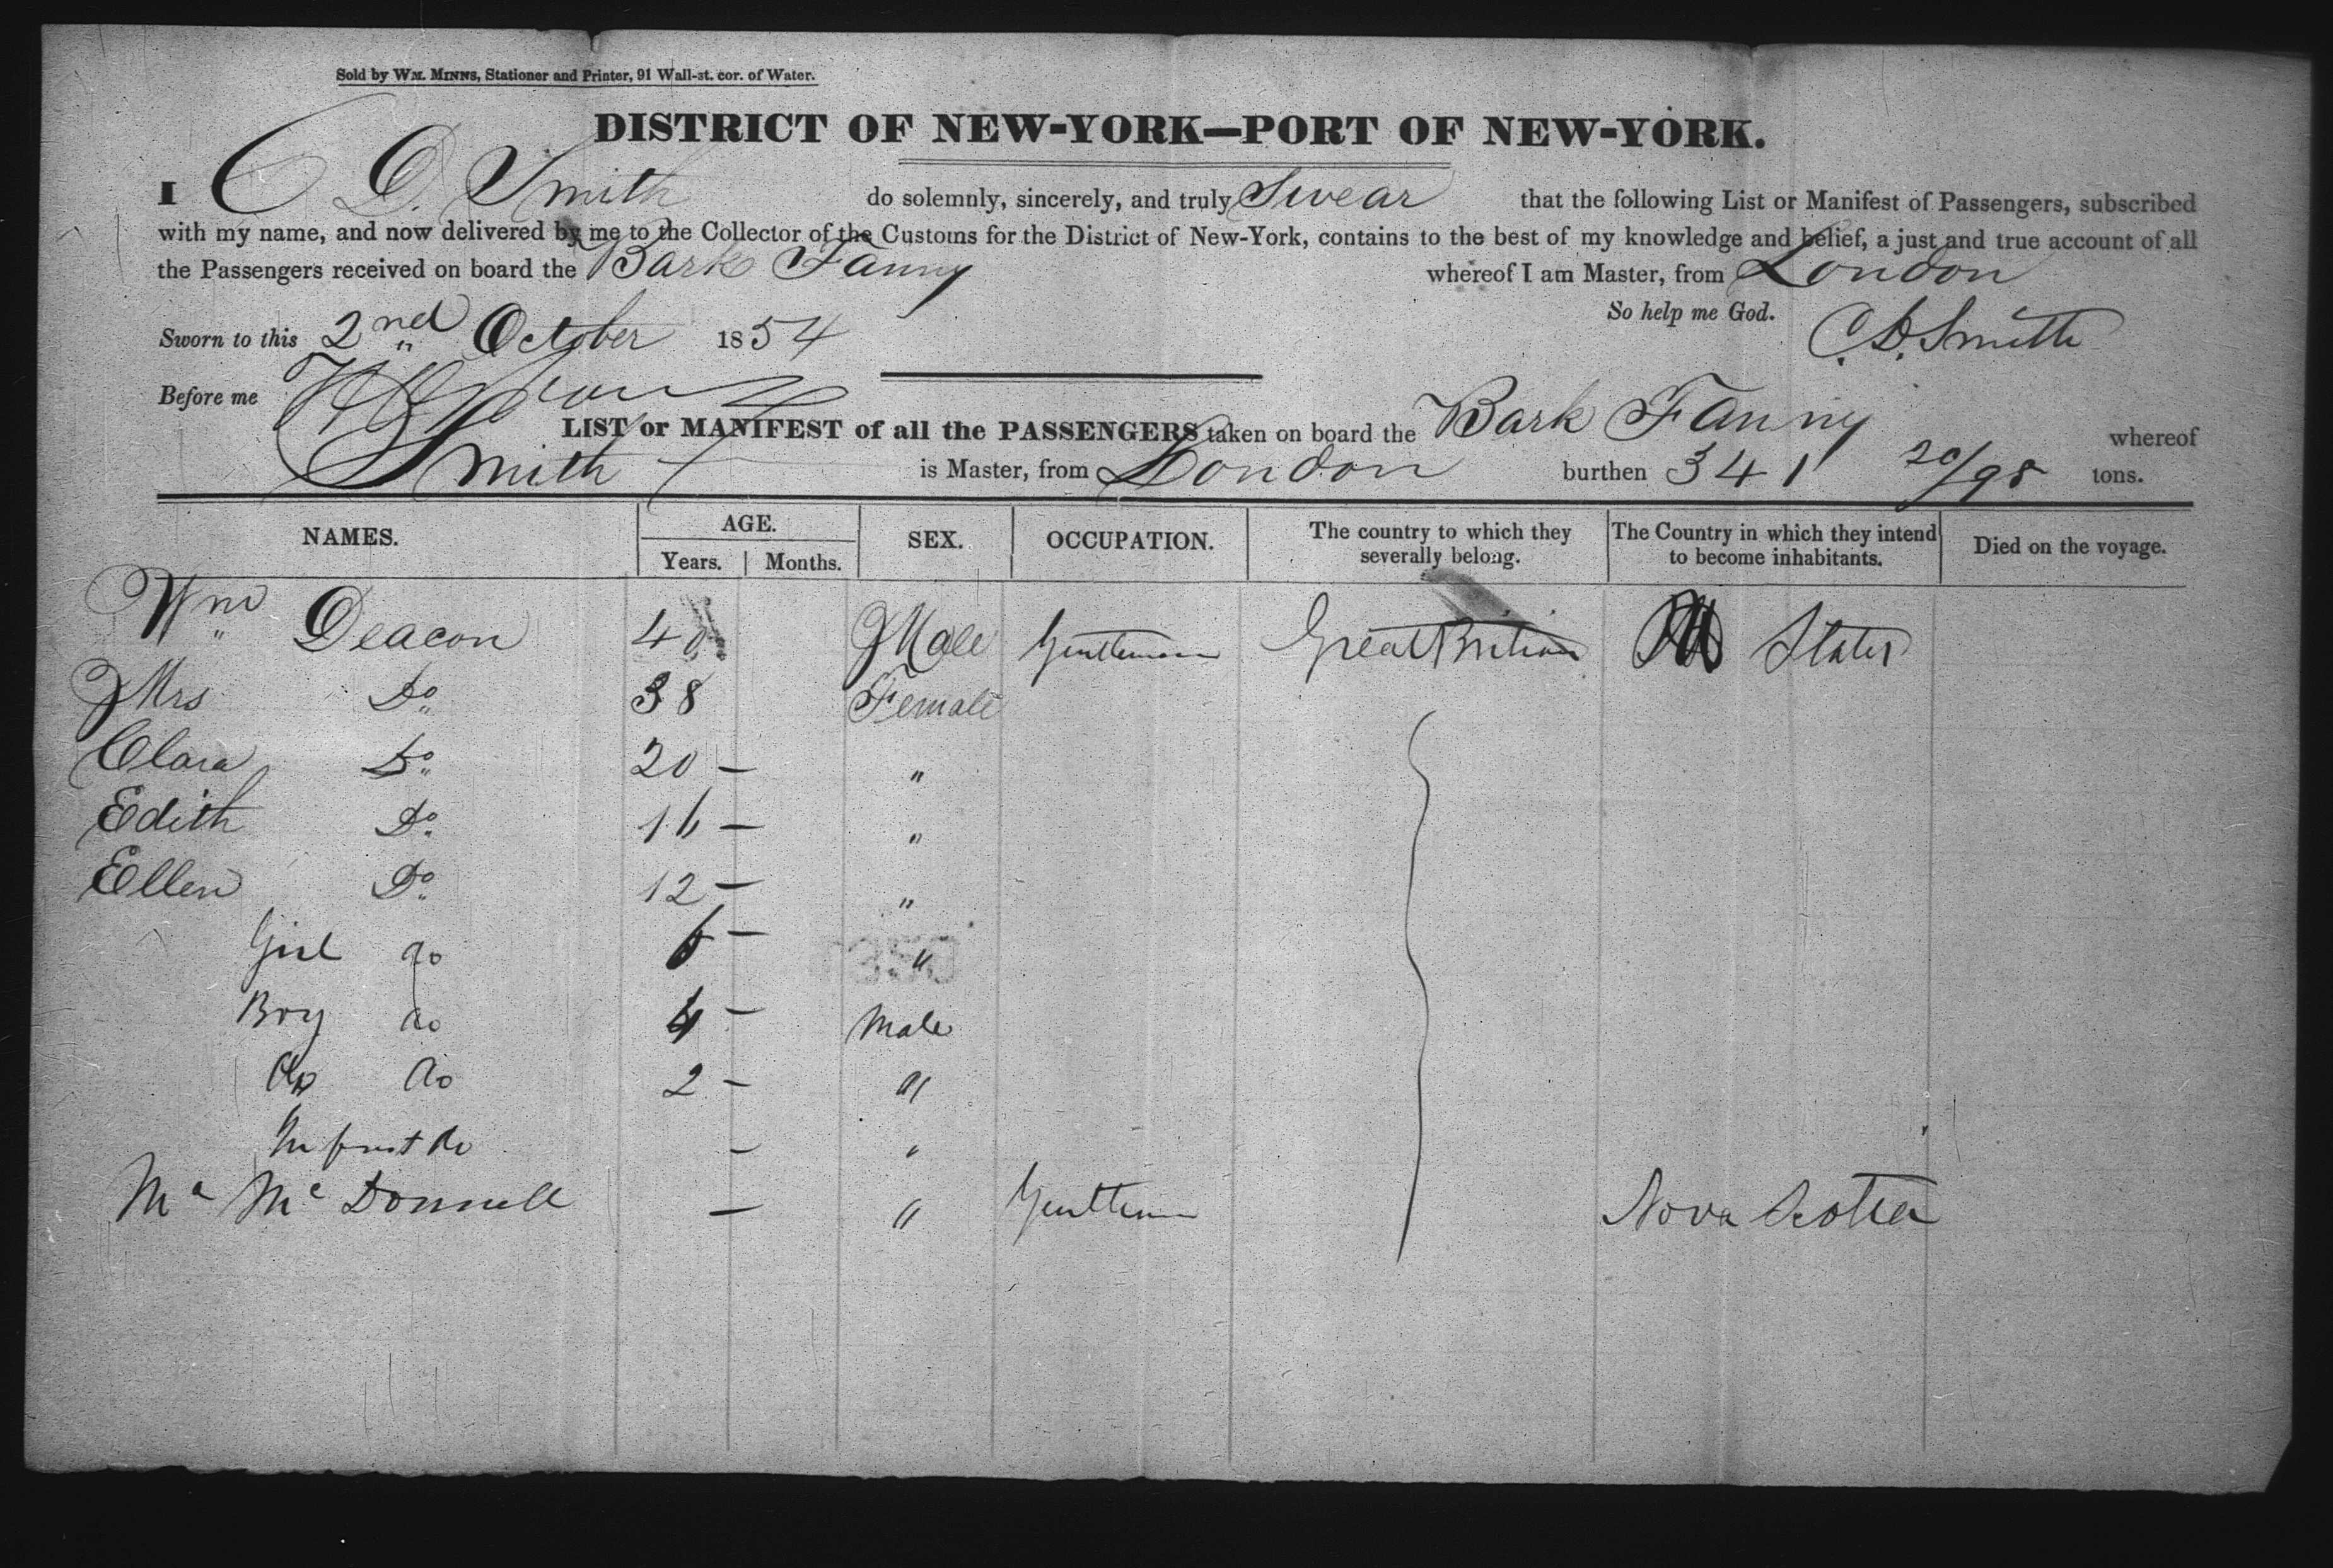 Sold by WM. MINNS, Stationer and Printer, 91 Wall-st. cor. of Water.
DISTRICT OF NEW-YORK—PORT OF NEW-YORK.
I C D. Smith do solemnly, sincerely, and truly Swear that the following List or Manifest of Passengers, subscribed
with my name, and now delivered by me to the Collector of the Customs for the District of New-York, contains to the best of my knowledge and belief, a just and true account of all
the Passengers received on board the Bark Fanny whereof I am Master, from London
So help me God. C. D. Smith
Sworn to this 2nd October 1854
Before me
LIST or MANIFEST of all the PASSENGERS taken on board the Bark Fanny whereof
Smith is Master, from London burthen 341 20/95 tons.
NAMES. AGE. Years. Months. SEX. OCCUPATION. The country to which they severally belong. The Country in which they intend to become inhabitants. Died on the voyage.
Wm Deacon 40 Male Gentleman Great Britian States
Mrs Do 38 Female
Clara Do 20 — "
Edith Do 16 — "
Ellen Do 12 — "
Girl do 6 — "
Boy do 4 — Male
do do 2 — "
Infant do — "
Mr McDonnell — " Gentleman Nova Scotia